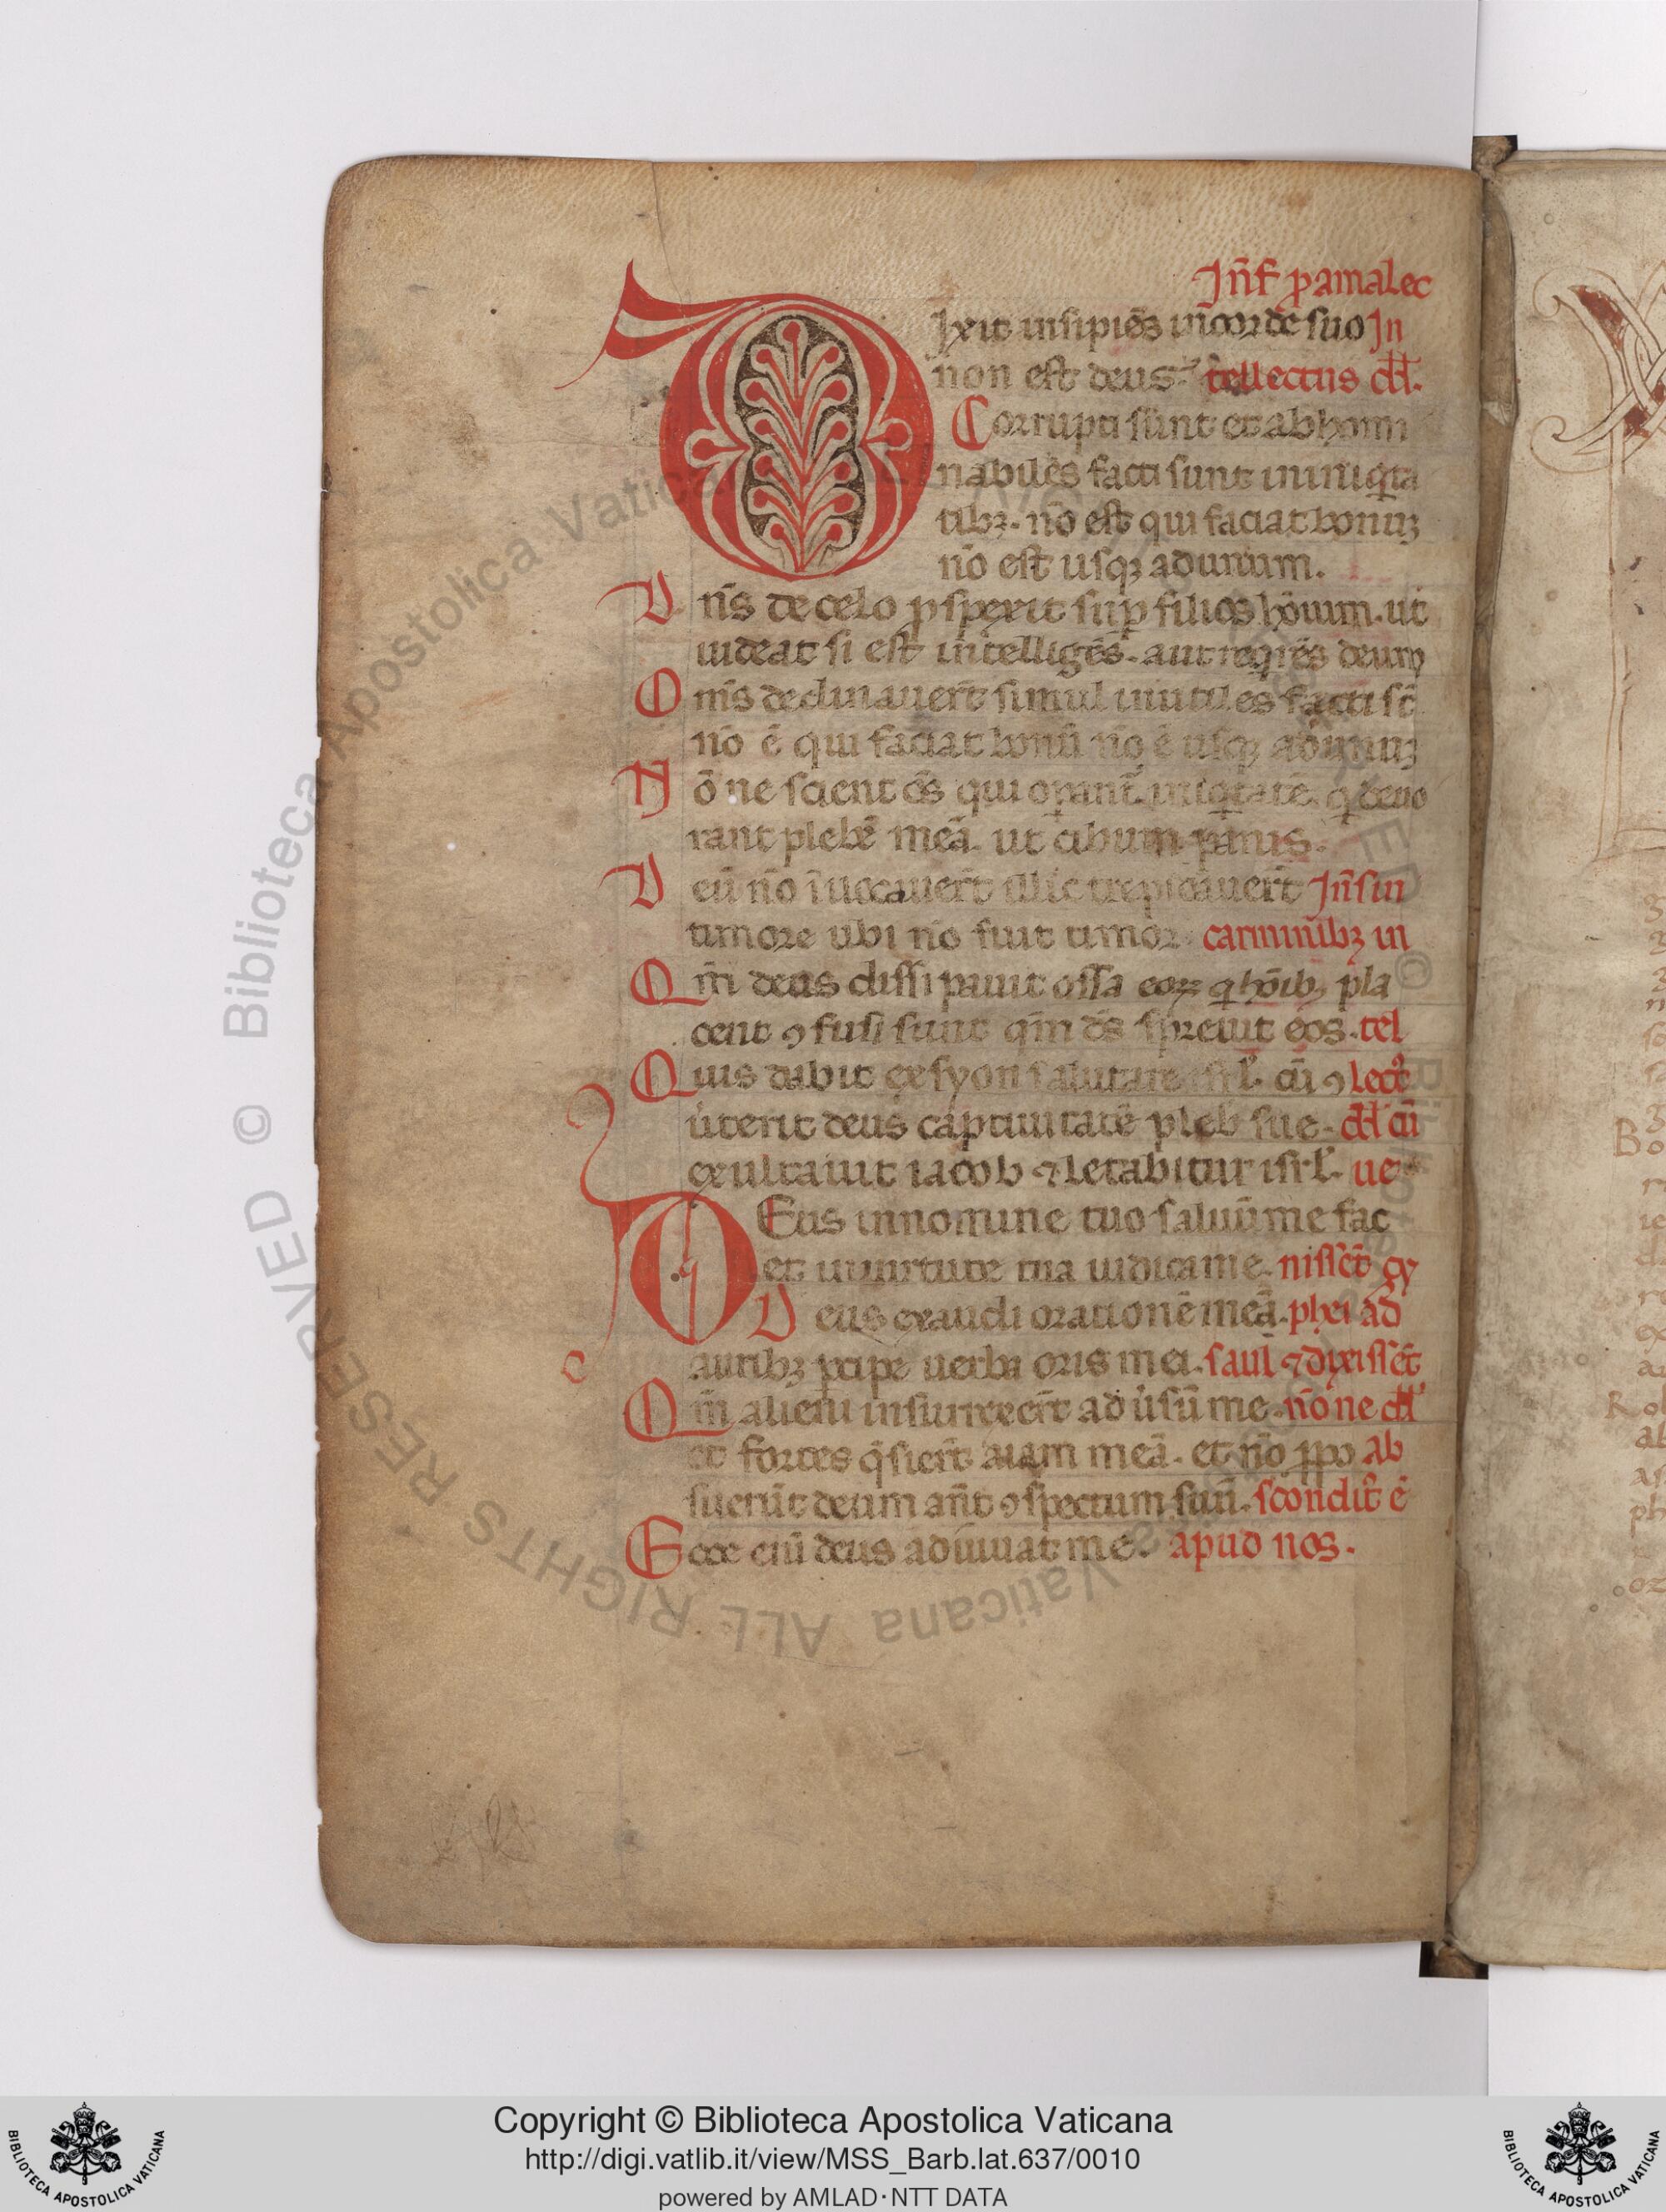 Jn̄f ꝑ amalec
Dixit insipiēs in corde suo Jn
non est deus. tellectus dd̄.
Corrupti sunt et abhomi
nabiles facti sunt in iniqta
tibꝫ. nō est qui faciat bonuꝫ
nō est usqꝫ ad unum.
D n̄s de celo ꝓspexit suꝑ filios hōium. ut
uideat si est intelligēs. aut reqrēs deum
O m̄s declinauer̄t simul inutiles facti sc̄
nō ē qui faciat bonū nō ē usqꝫ ad unuꝫ
N ōne scient om̄s qui oꝑant̄ iniqtatē. q deuo
rant plebē meā. ut cibum panis.
D eū nō īuocauer̄t illic trepidauer̄t Jn̄ fin
timore ubi nō fuit timor. carminibꝫ in
Q m̄ deus dissipauit ossa eoꝝ q hōibꝫ pla
cent ꝯfusi sunt qm̄ ds̄ spreuit eos. tel
Q uis dabit ex syon salutare isrl̄. cū ꝯ lect᷒
uterit deus captiuitatē pleb̄ sue. dd̄ cū
exultauit iacob ⁊ letabitur isrl̄. ue
DEus in nomine tuo saluū me fac
et in uirtute tua iudica me. nissēt cy
D eus exaudi orationē meā. phei ad
auribꝫ ꝑcipe uerba oris mei. saul ⁊ dixissēt
Q m̄ alieni insurrexer̄t aduersū me. nōne dd̄
et fortes qsier̄t aīam meā. et nō ꝓpo ab
suerūt deum ant̄ ꝯspectum suū. sconditꝰ ē
E cce enī deus adiuuat me. apud nos.
Copyright © Biblioteca Apostolica Vaticana
http://digi.vatlib.it/view/MSS_Barb.lat.637/0010
powered by AMLAD·NTT DATA
BIBLIOTECA APOSTOLICA VATICANA
BIBLIOTECA APOSTOLICA VATICANA
© Biblioteca Apostolica Vaticana ALL RIGHTS RESERVED